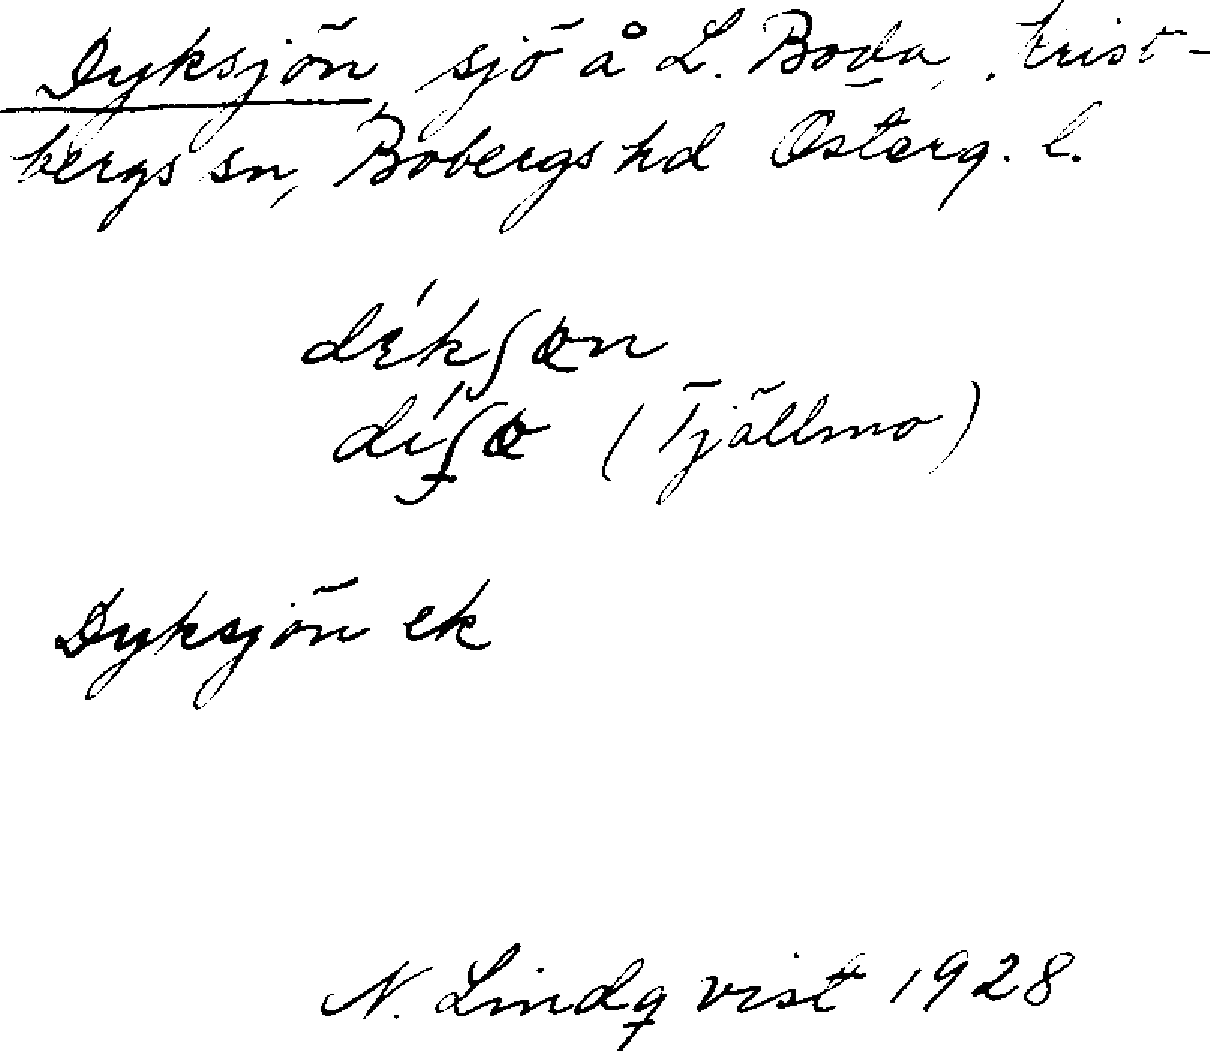 Dyksjön sjö å L. Boda, Krist-
bergs sn, Bobergs hd Österg. l.
(Tjällmo)
Dyksjön ek
N. Lindqvist 1928